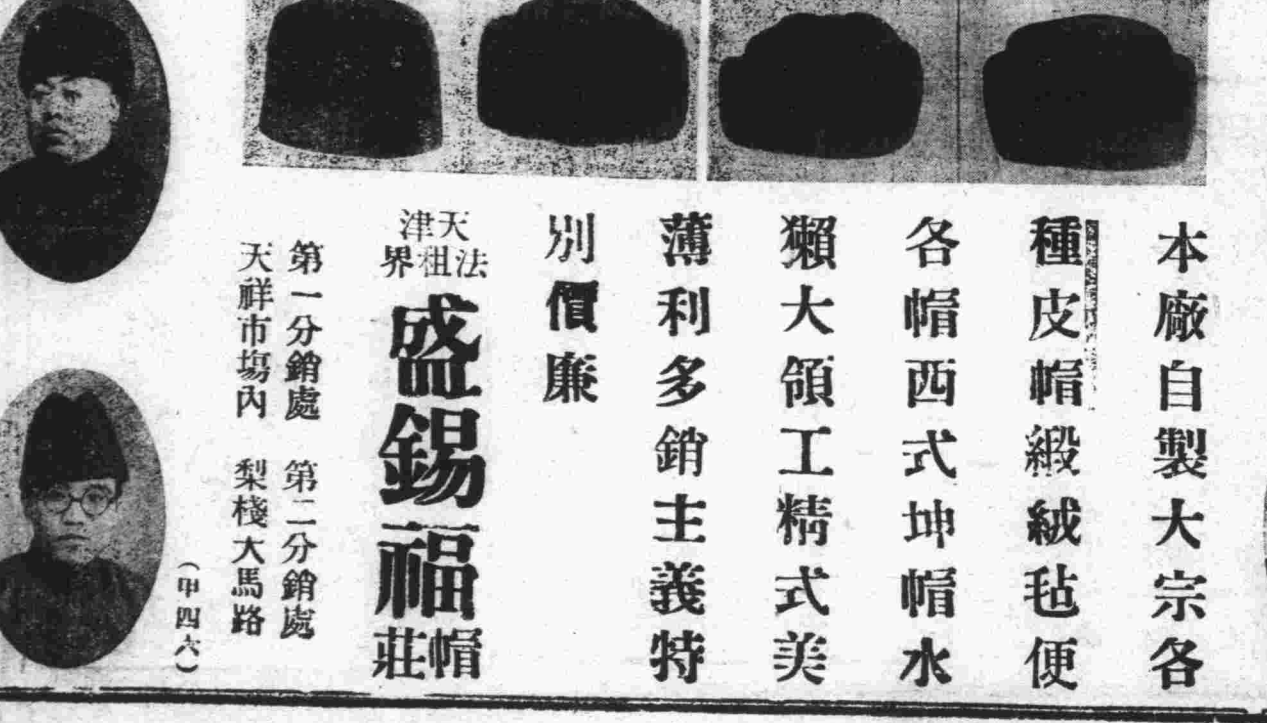 本廠自製大宗各
種皮帽緞絨毡便
各帽西式坤帽水
獺大領工精式美
薄利多銷主義特
別價廉
天津
法租界
盛錫福
帽莊
第一分銷處
天祥市塲內
第二分銷處
梨棧大馬路
（甲四六）